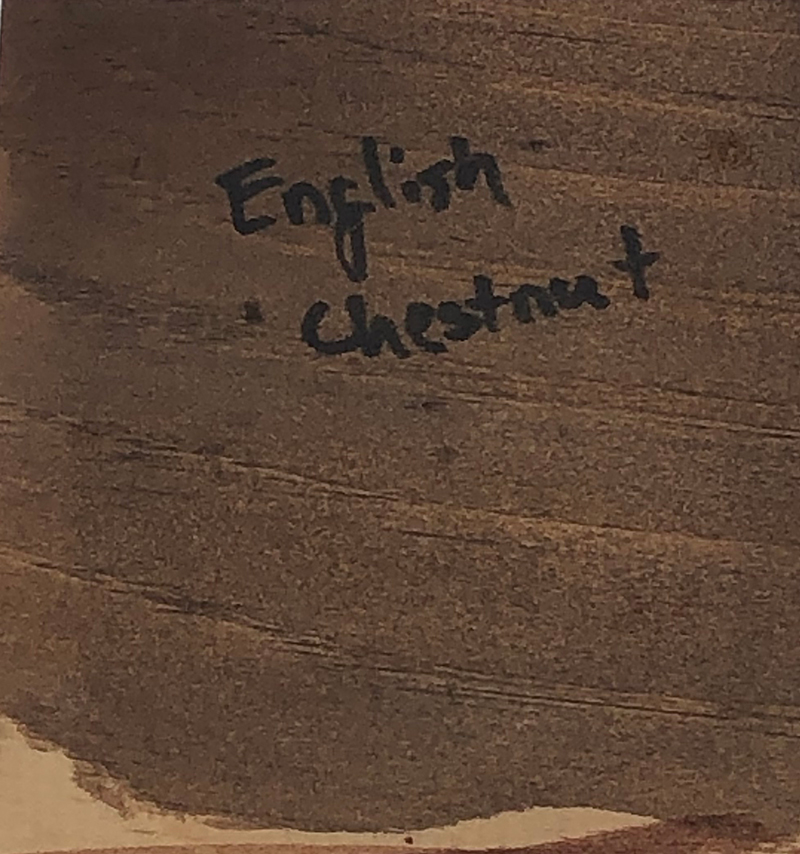 English
Chestnut